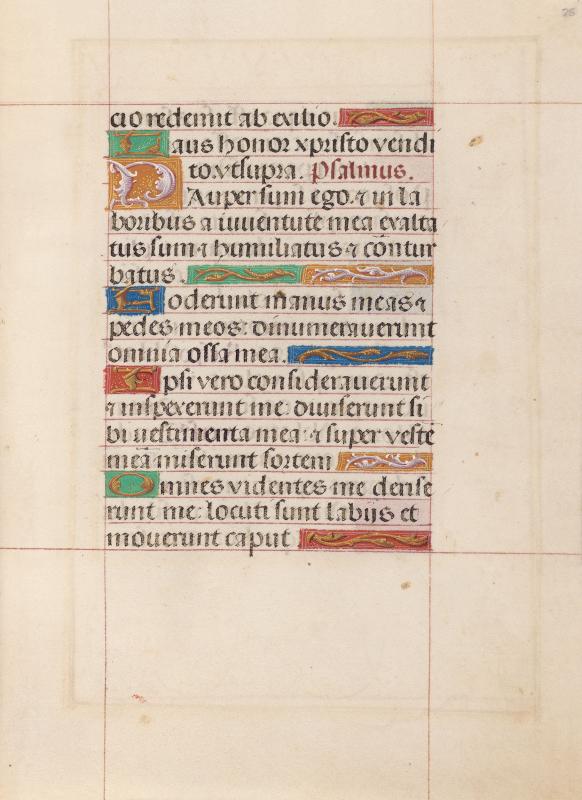 26
cio redemit ab exilio.
Laus honor xpristo vendi
to. vt supra. Psalmus.
Pauper sum ego. ⁊ in la
boribus a iuuentute mea exalta
tus sum ⁊ humiliatus ⁊ cōntur
batus.
Foderunt manus meas ⁊
pedes meos: dinumerauerunt
omnia ossa mea.
Ipsi vero considerauerunt
⁊ inspexerunt me: diuiserunt si
bi uestimenta mea: ⁊ super vestē
meā miserunt sortem
Omnes videntes me derise
runt me: locuti sunt labijs et
mouerunt caput